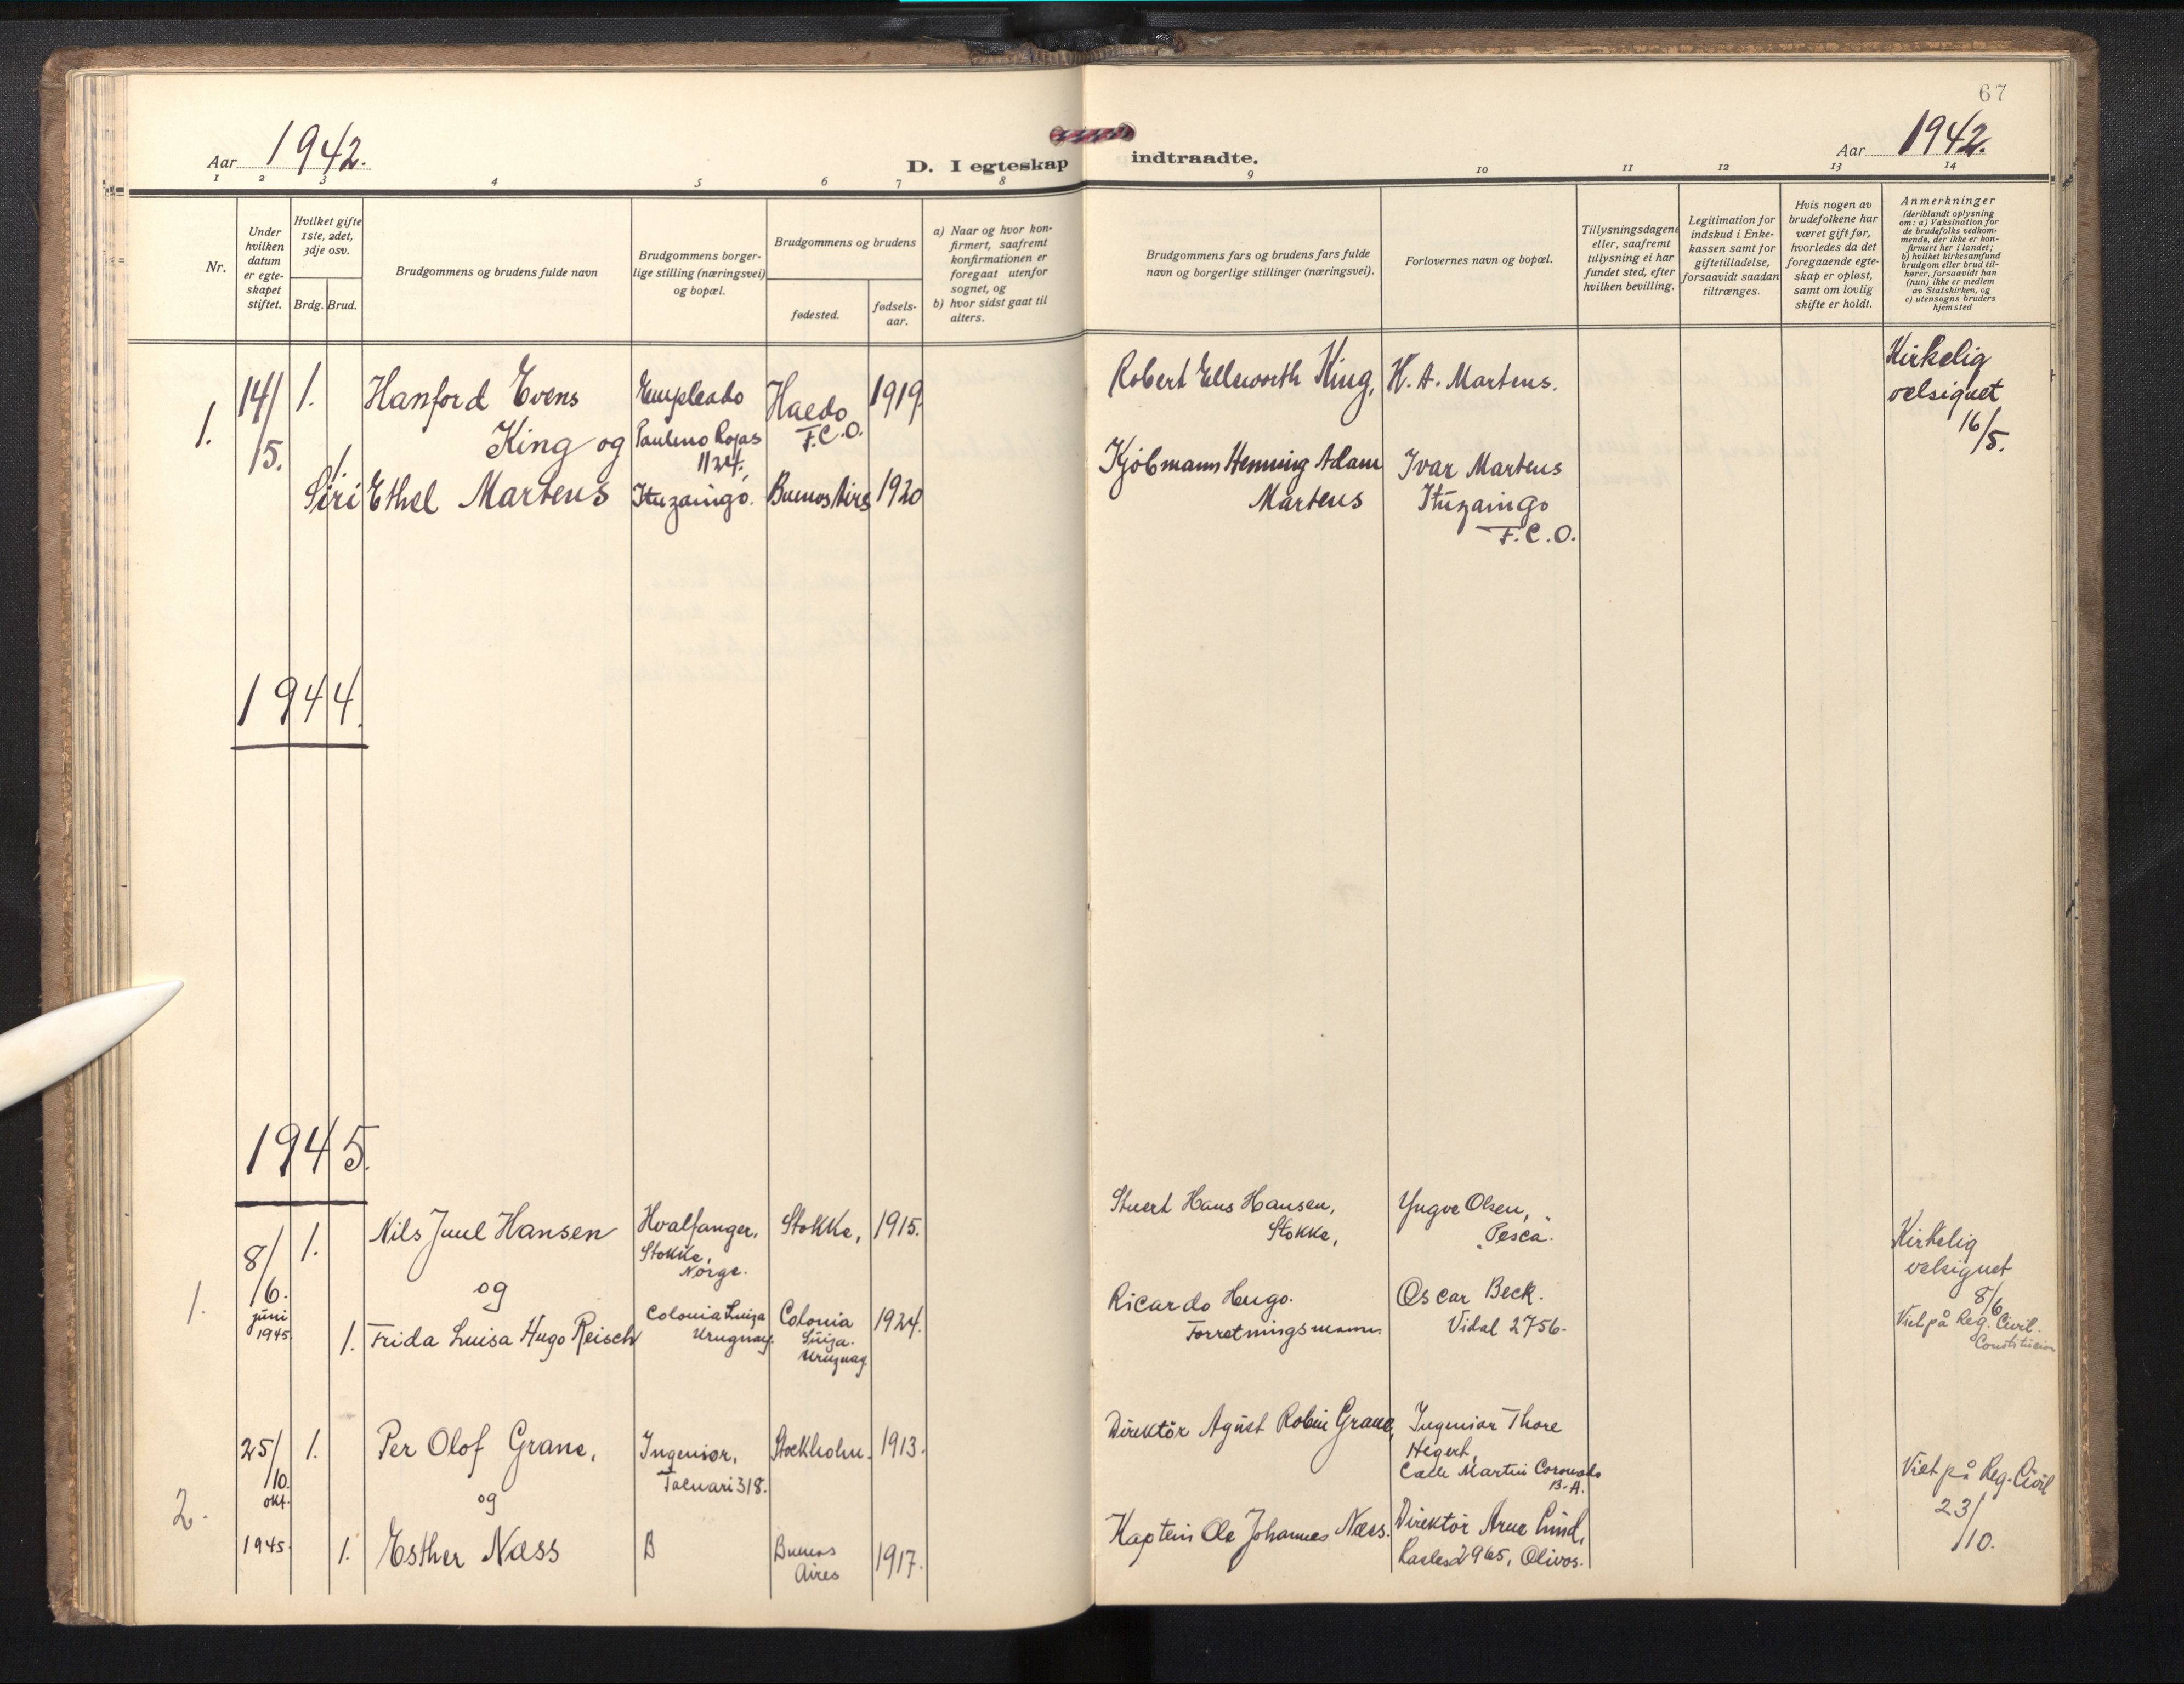 67
Aar 1942.
D. I egteskap indtraadte.
Aar 1942.
1 2 3 4 5 6 7 8 9 10 11 12 13 14
Nr.
Under hvilken datum er egte-skapet stiftet.
Hvilket gifte 1ste, 2det, 3dje osv.
Brdg. Brud.
Brudgommens og brudens fulde navn
Brudgommens borger-lige stilling (næringsvei) og bopæl.
Brudgommens og brudens
fødested.
fødsels-aar.
a) Naar og hvor kon-firmert, saafremt konfirmationen er foregaat utenfor sognet, og
b) hvor sidst gaat til alters.
Brudgommens fars og brudens fars fulde navn og borgerlige stillinger (næringsvei).
Forlovernes navn og bopæl.
Tillysningsdagene eller, saafremt tillysning ei har fundet sted, efter hvilken bevilling.
Legitimation for indskud i Enke-kassen samt for giftetilladelse, forsaavidt saadan tiltrænges.
Hvis nogen av brudefolkene har været gift før, hvorledes da det foregaaende egte-skap er opløst, samt om lovlig skifte er holdt.
Anmerkninger
(deriblandt oplysning om: a) Vaksination for de brudefolks vedkom-mende, der ikke er kon-firmert her i landet; b) hvilket kirkesamfund brudgom eller brud til-hører, forsaavidt han (hun) ikke er medlem av Statskirken, og c) utensogns bruders hjemsted
1.
14/
/5.
1.
Hanford Evens
King og
Empleado
Paulino Rojas
1124,
Haedo
F.C.O.
1919.
Robert Ellsworth King,
H. A. Martens.
Kirkelig
velsignet
16/5.
1
Siri Ethel Martens
Ituzaingó.
Buenos Aires
1920
Kjöbmann Henning Adam
Martens
Ivar Martens
Ituzaingo
F.C.O.
1944.
1945.
1.
8/
/6.
juni
1945
1.
Nils Juul Hansen
og
Hvalfanger,
Stokke,
Norge.
Stokke,
1915.
Stuert Hans Hansen,
Stokke,
Yngve Olsen,
"Pesca".
Kirkelig
velsignet
8/6
1.
Frida Luisa Hugo Reisch
Colonia Luiza
Uruguay.
Colonia
Luiza.
Uruguay.
1924.
Ricardo Hugo.
Forretningsmann.
Oscar Beck.
Vidal 2756-
Viet på Reg. Civil.
Constitucion
2.
25/
/10.
okt.
1945.
1.
Per Olof Grane,
og
Ingeniør,
Tacuari 318.
Stockholm.
1913.
Direktör Agust Robin Grane,
Ingeniør Thore
Hegert,
Calle Martin Coronado
B.A.
Viet på Reg. Civil
23/
/10.
1.
Esther Næss
B
Buenos
Aires
1917.
Kaptein Ole Johannes Næss.
Direktör Arne Lind,
2965, Olivos.